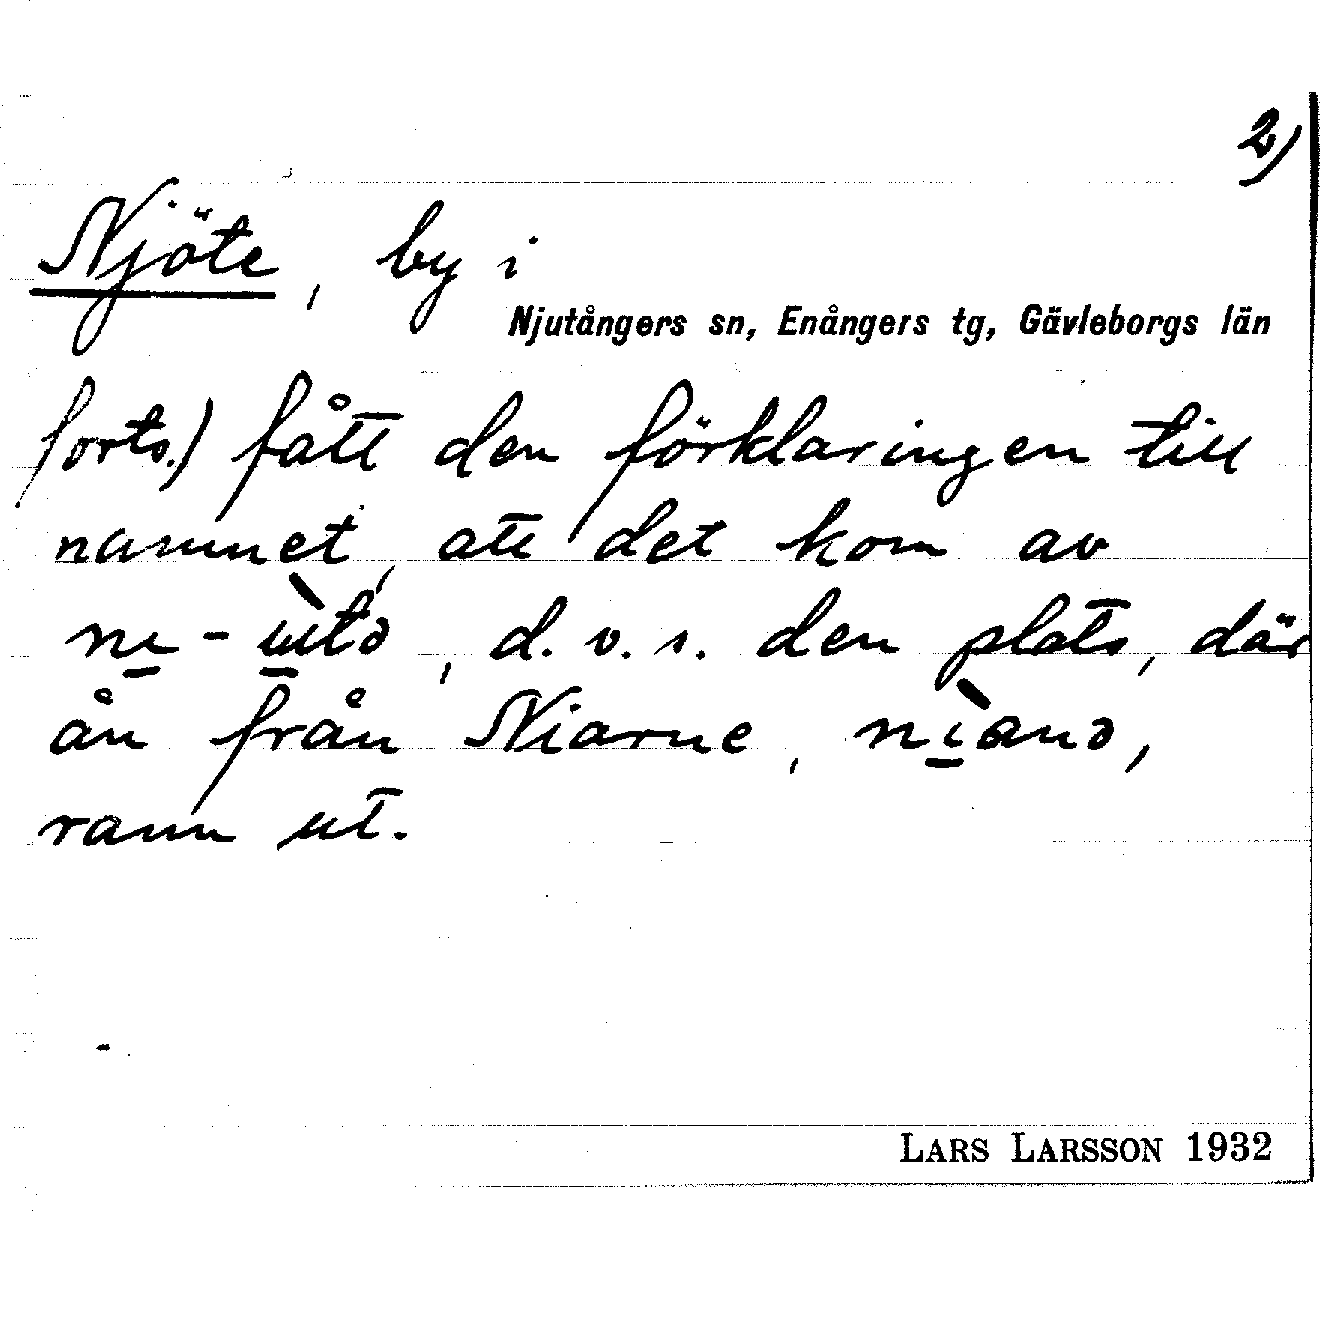 2)
Njöte, by i
Njutångers sn, Enångers tg, Gävleborgs län
forts.) fått den förklaringen till
namnet, att det kom av
d. v. s. den plats, där
ån från Niarne,
rann ut.
LARS LARSSON 1932